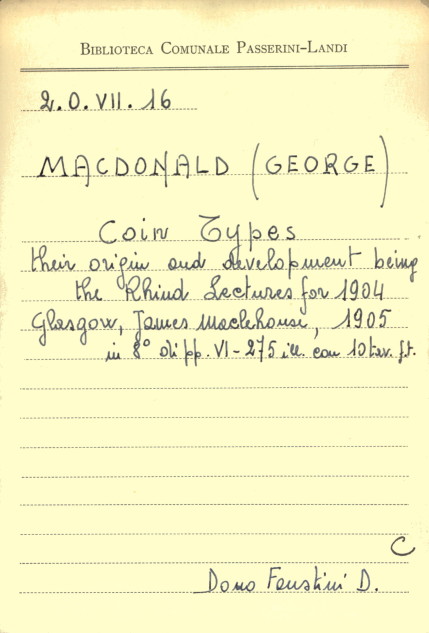 BIBLIOTECA COMUNALE PASSERINI-LANDI
2.O.VII.16
MACDONALD (GEORGE)
Coin Types
their origin and development being
the Rhind Lectures for 1904
Glasgow, James Maclehouse, 1905
in 8° di pp. VI-275 ill. con 10 tav. f.t.
C
Dono Faustini D.